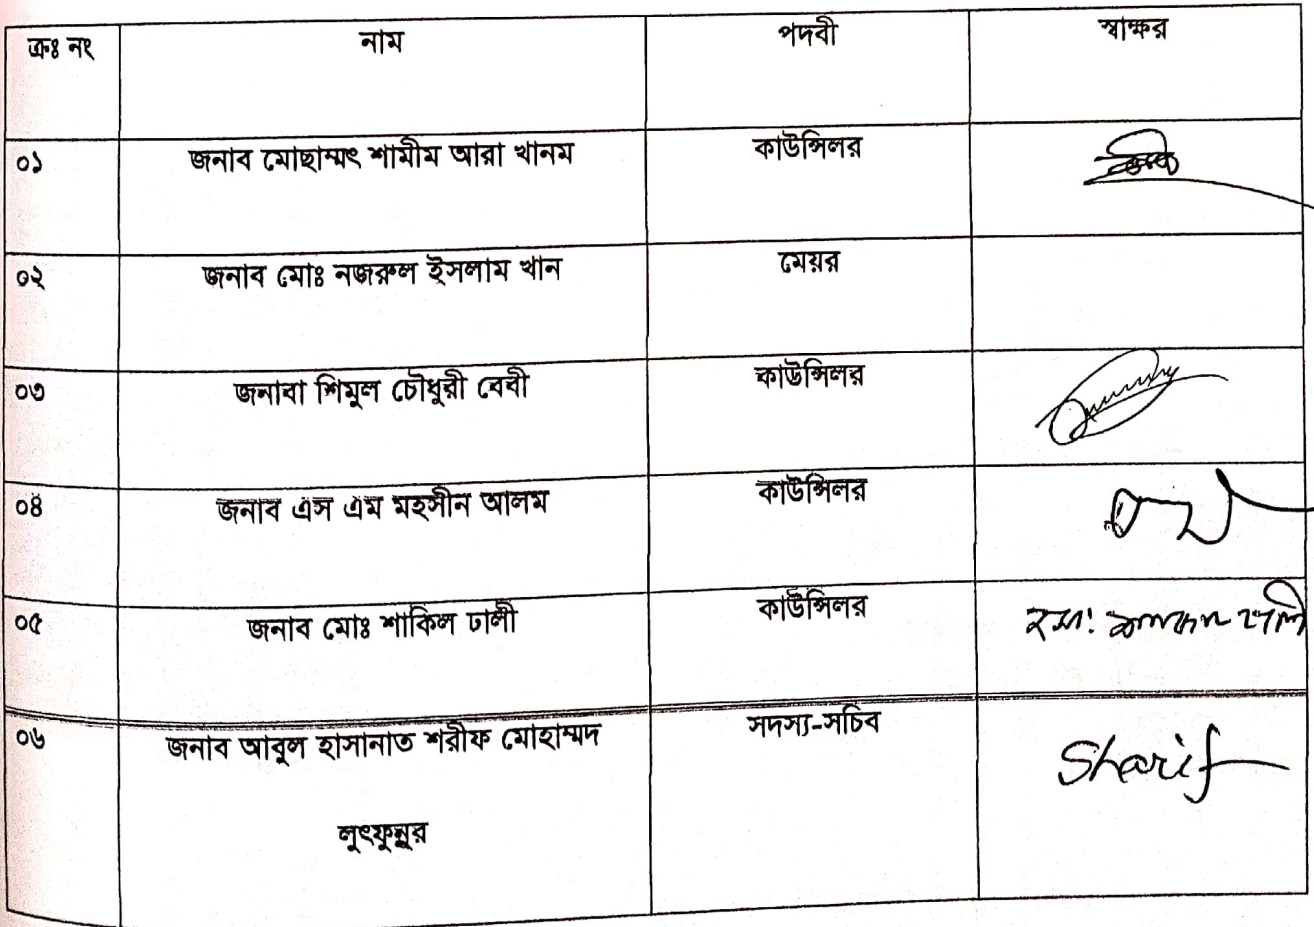 ক্রঃ নং নাম পদবী স্বাক্ষর
০১ জনাব মোছাম্মৎ শামীম আরা খানম কাউন্সিলর
০২ জনাব মোঃ নজরুল ইসলাম খান মেয়র
০৩ জনাবা শিমুল চৌধুরী বেবী কাউন্সিলর
০৪ জনাব এস এম মহসীন আলম কাউন্সিলর
০৫ জনাব মোঃ শাকিল ঢালী কাউন্সিলর
০৬ জনাব আবুল হাসানাত শরীফ মোহাম্মদ সদস্য-সচিব Sharif
লুৎফুন্নুর